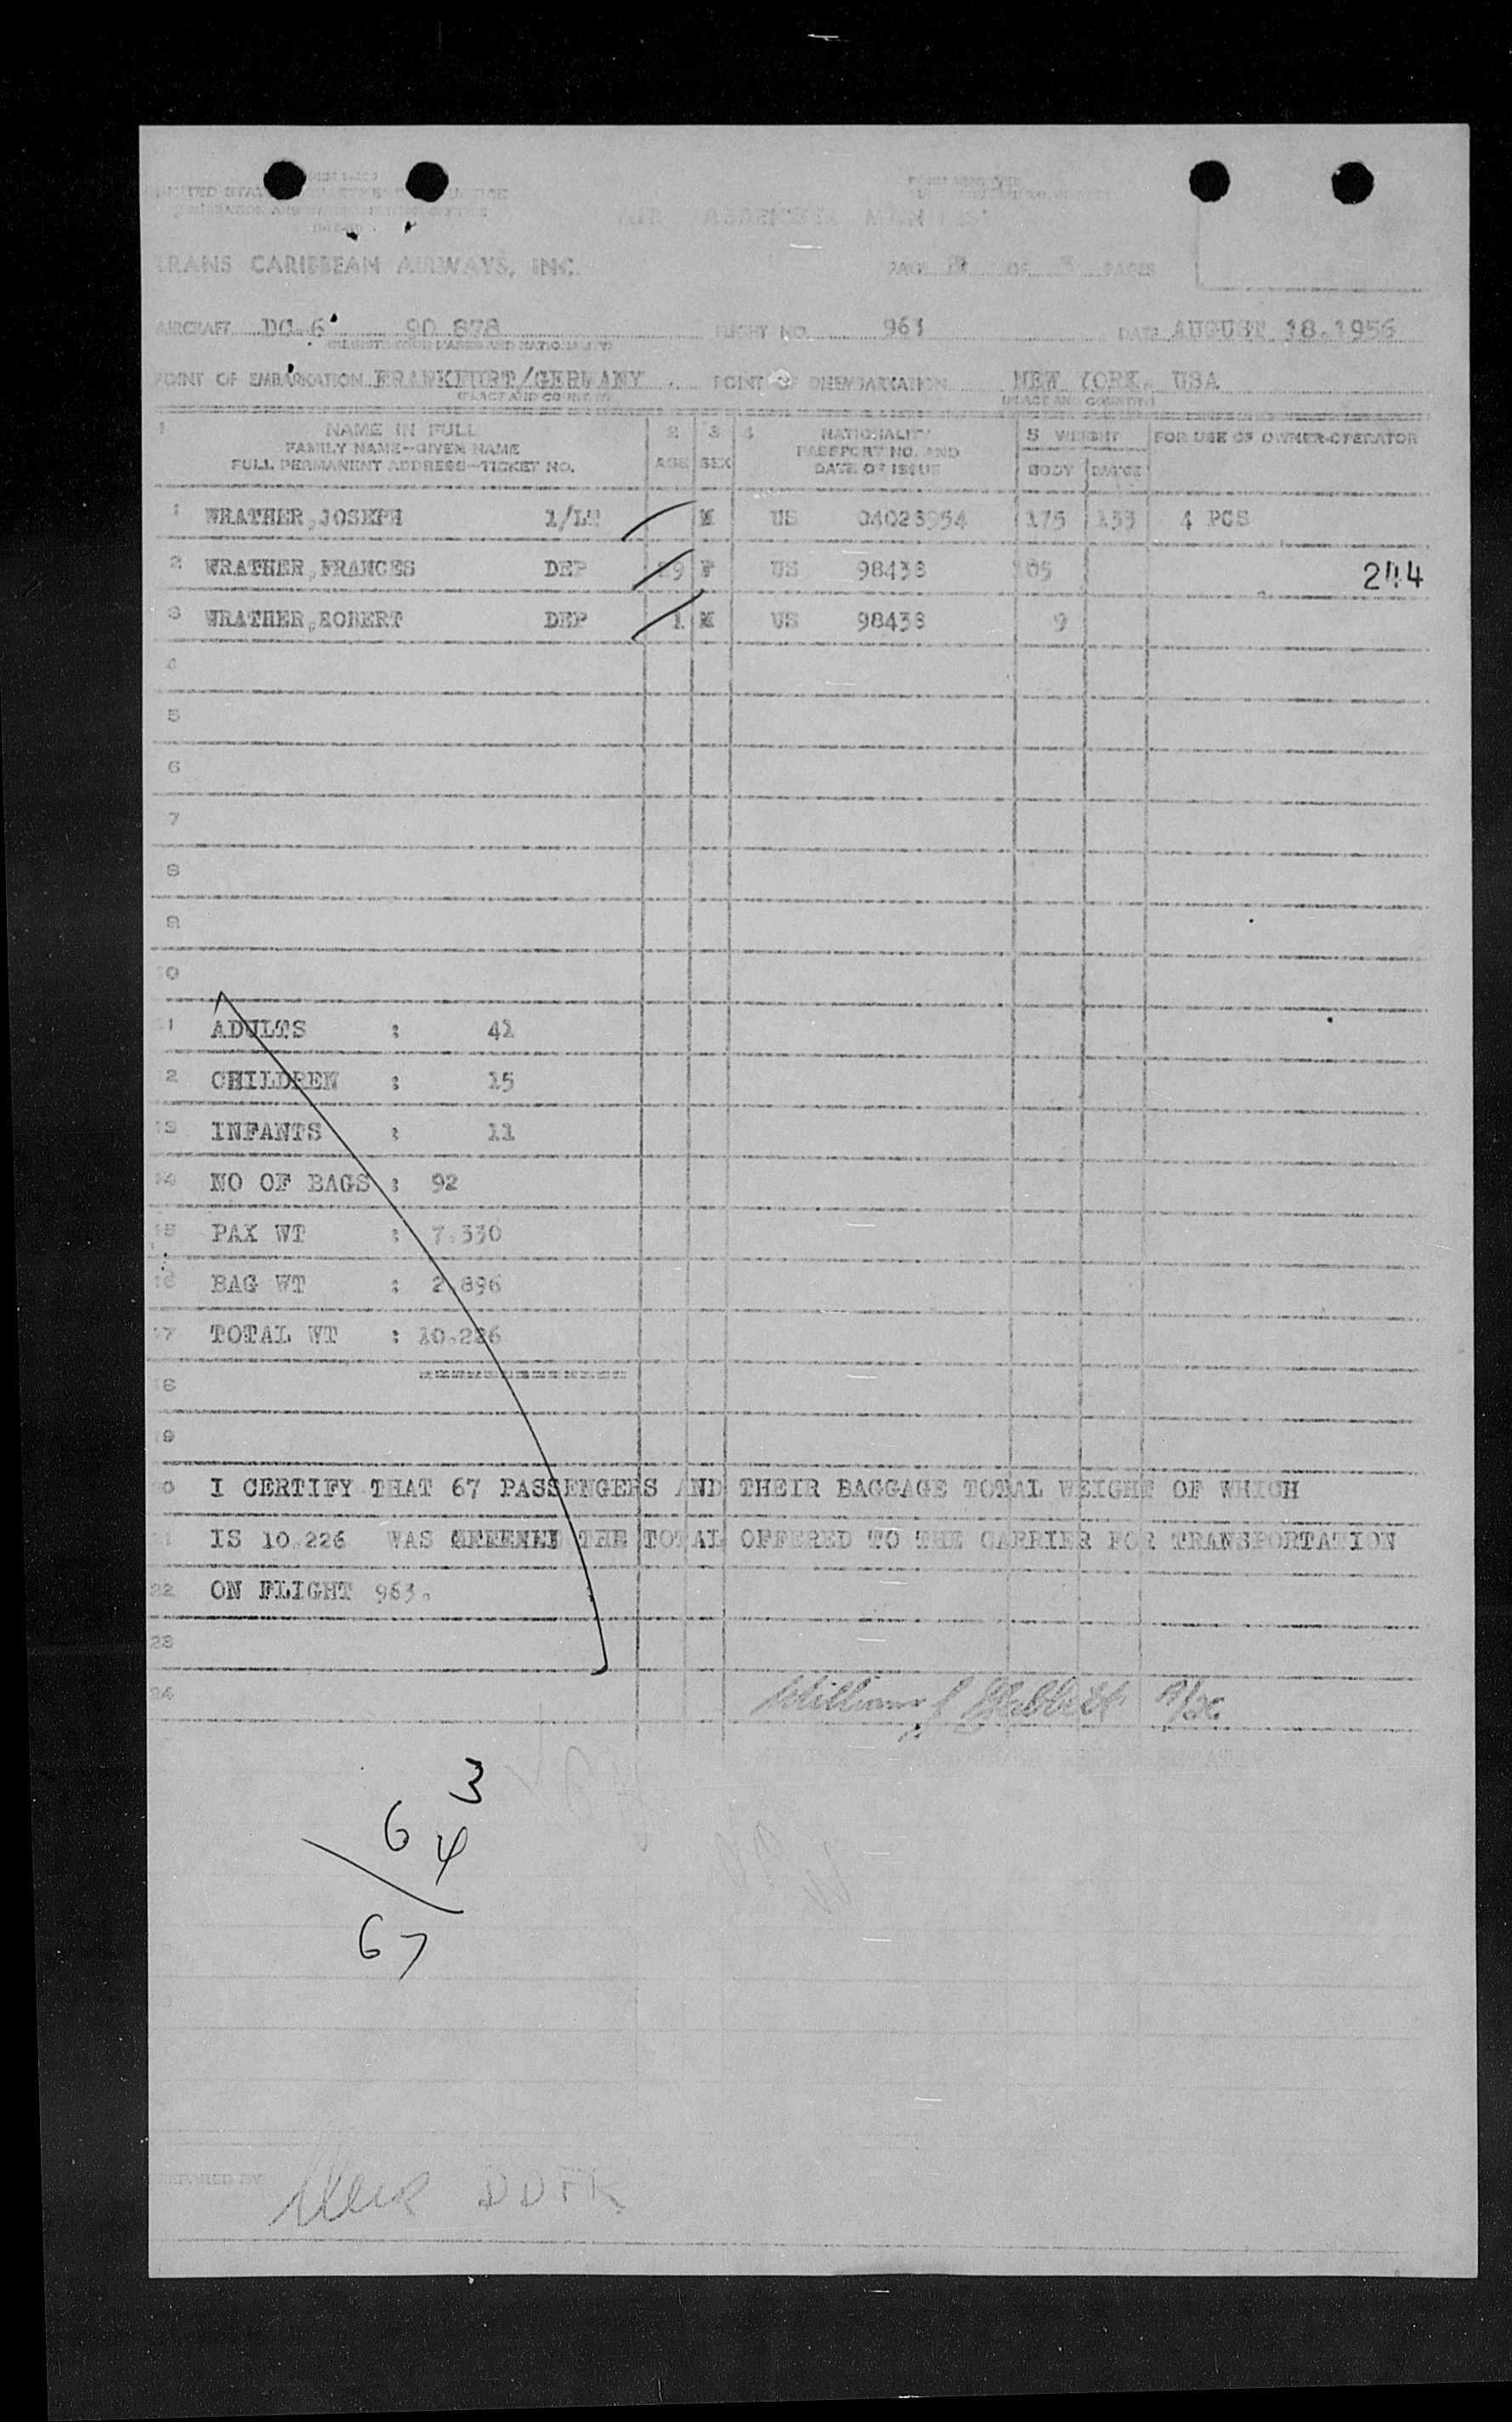 TRANS CARIBBEAN AIRWAYS, INC.
PAGE OF PAGES
AIRCRAFT DC.6 90 878 FLIGHT NO. 963 DATE AUGUST 18.1956
(REGISTRATION MARKS AND NATIONALITY)
POINT OF EMBARKATION FRANKFURT/GERMANY POINT OF DISEMBARKATION NEW YORK. USA
(PLACE AND COUNTRY) (PLACE AND COUNTRY)
1 NAME IN FULL 2 3 4 NATIONALITY 5 WEIGHT FOR USE OF OWNER-OPERATOR
FAMILY NAME--GIVEN NAME PASSPORT NO. AND
FULL PERMANENT ADDRESS--TICKET NO. AGE SEX DATE OF ISSUE BODY BAG'GE
1 WRATHER,JOSEPH 1/LT M US 04028954 175 133 4 PCS
2 WRATHER,FRANCES DEP 29 F US 98438 105 244
3 WRATHER,ROBERT DEP 1 M US 98438 9
4
5
6
7
8
9
10
11 ADULTS : 41
12 CHILDREN : 15
13 INFANTS : 11
14 NO OF BAGS : 92
15 PAX WT : 7.330
16 BAG WT : 2.896
17 TOTAL WT : 10.226
18
19
20 I CERTIFY THAT 67 PASSENGERS AND THEIR BAGGAGE TOTAL WEIGHT OF WHICH
21 IS 10.226 WAS THE TOTAL OFFERED TO THE CARRIER FOR TRANSPORTATION
22 ON FLIGHT 963.
23
24 William
3
6
4
67
PREPARED BY